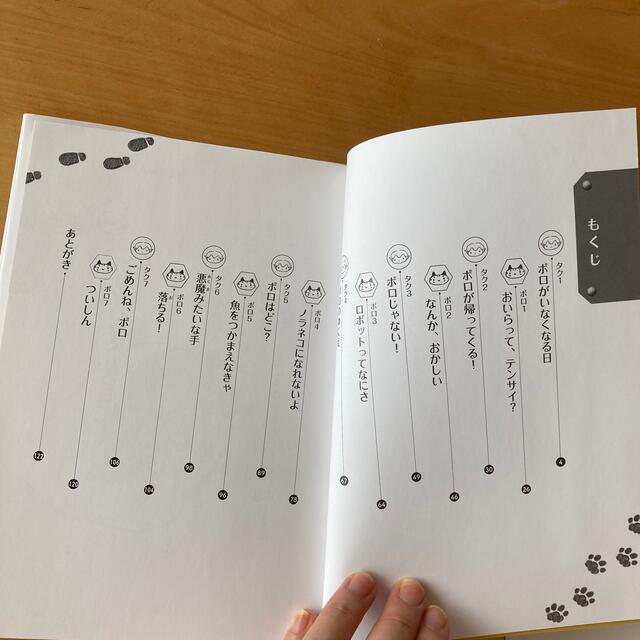 もくじ
タク1 ポロがいなくなる日 4
ポロ1 おいらって、テンサイ? 26
タク2 ポロが帰ってくる! 30
ポロ2 なんか、おかしい 46
タク3 ポロじゃない! 49
ポロ3 ロボットってなにさ 64
タク4 67
ポロ4 ノラネコになれないよ 78
タク5 ポロはどこ? 89
ポロ5 魚をつかまえなきゃ 96
タク6 悪魔みたいな手 98
ポロ6 落ちる! 104
タク7 ごめんね、ポロ 106
ポロ7 ついしん 120
あとがき 122